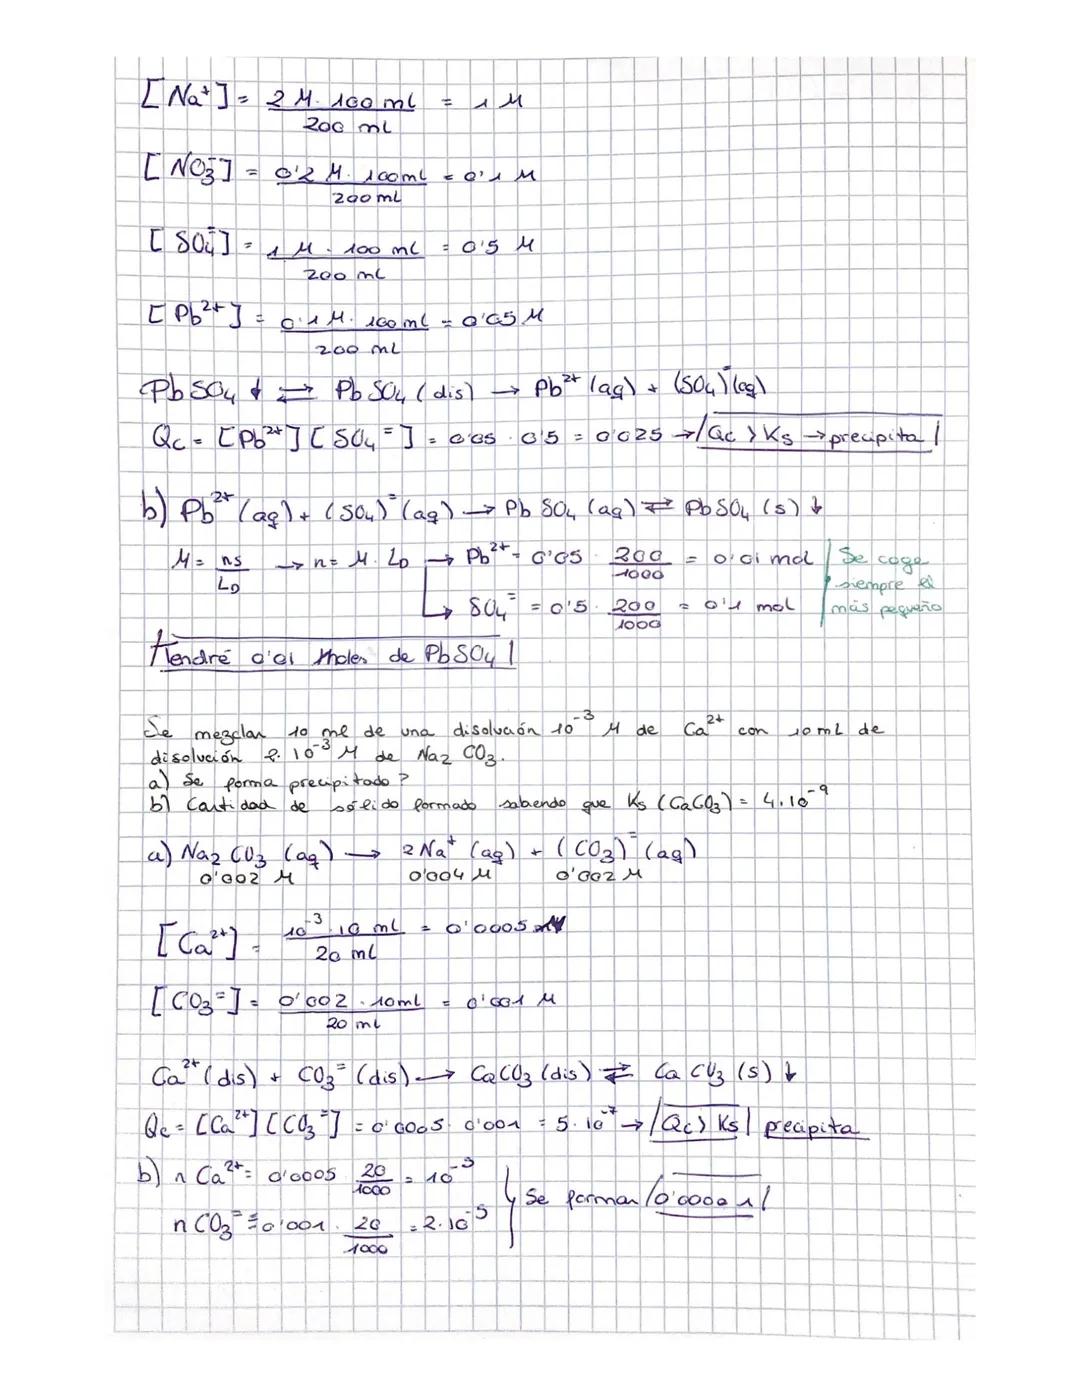 [Na⁺] = 2 M · 100 ml / 200 ml = 1 M
[NO₃⁻] = 0'2 M · 100 ml / 200 ml = 0'1 M
[SO₄⁼] = 1 M · 100 ml / 200 ml = 0'5 M
[Pb²⁺] = 0'1 M · 100 ml / 200 ml = 0'05 M
PbSO₄ ↓ ⇄ PbSO₄ (dis) → Pb²⁺ (aq) + (SO₄)⁼ (aq)
Qc = [Pb²⁺] [SO₄⁼] = 0'05 · 0'5 = 0'025 → Qc > Ks → precipita
b) Pb²⁺ (aq) + (SO₄)⁼ (aq) → PbSO₄ (aq) ⇄ PbSO₄ (s) ↓
M = ns / LD → n = M · LD → Pb²⁺ = 0'05 · 200 / 1000 = 0'01 mol
→ SO₄⁼ = 0'5 · 200 / 1000 = 0'1 mol
Se coge
siempre el
más pequeño
Tendré 0'01 moles de PbSO₄
Se mezclan 10 ml de una disolución 10⁻³ M de Ca²⁺ con 10 mL de
disolución 2·10⁻³ M de Na₂CO₃.
a) Se forma precipitado?
b) Cantidad de sólido formado sabendo que Ks (CaCO₃) = 4·10⁻⁹
a) Na₂CO₃ (aq) → 2Na⁺ (aq) + (CO₃)⁼ (aq)
0'002 M 0'004 M 0'002 M
[Ca²⁺] = 10⁻³ · 10 mL / 20 mL = 0'0005 M
[CO₃⁼] = 0'002 · 10mL / 20 mL = 0'001 M
Ca²⁺ (dis) + CO₃⁼ (dis) → CaCO₃ (dis) ⇄ CaCO₃ (s) ↓
Qc = [Ca²⁺] [CO₃⁼] = 0'0005 · 0'001 = 5·10⁻⁷ → Qc > Ks precipita
b) n Ca²⁺ = 0'0005 · 20 / 1000 = 10⁻⁵
n CO₃⁼ = 0'001 · 20 / 1000 = 2·10⁻⁵
Se forman 0'00001